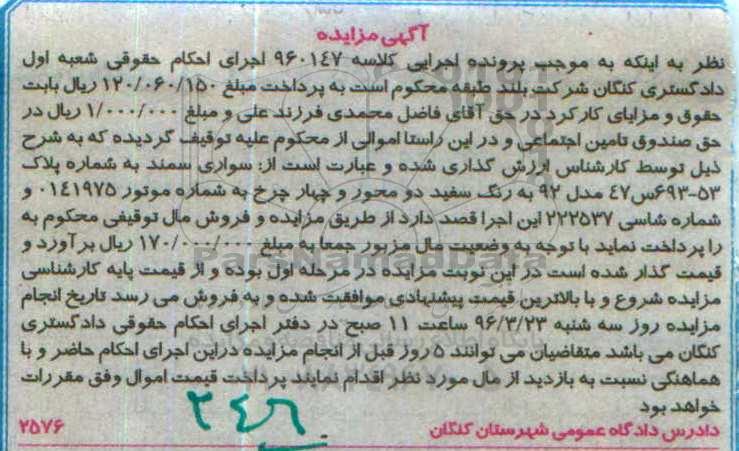 آگهی مزایده
نظر به اینکه به موجب پرونده اجرایی کلاسه ۹۶۰۱۴۷ اجرای احکام حقوقی شعبه اول
دادگستری کنگان شرکت بلند طبقه محکوم است به پرداخت مبلغ ۱۲۰/۰۶۰/۱۵۰ ریال بابت
حقوق و مزایای کارکرد در حق آقای فاضل محمدی فرزند علی و مبلغ ۱/۰۰۰/۰۰۰ ریال در
حق صندوق تامین اجتماعی و در این راستا اموالی از محکوم علیه توقیف گردیده که به شرح
ذیل توسط کارشناس ارزش گذاری شده و عبارت است از: سواری سمند به شماره پلاک
۵۳-۶۹۳س۴۷ مدل ۹۲ به رنگ سفید دو محور و چهار چرخ به شماره موتور ۰۱۴۱۹۷۵ و
شماره شاسی ۲۲۲۵۳۷ این اجرا قصد دارد از طریق مزایده و فروش مال توقیفی محکوم به
را پرداخت نماید با توجه به وضعیت مال مزبور جمعا به مبلغ ۱۷۰/۰۰۰/۰۰۰ ریال برآورد و
قیمت گذار شده است در این نوبت مزایده در مرحله اول بوده و از قیمت پایه کارشناسی
مزایده شروع و با بالاترین قیمت پیشنهادی موافقت شده و به فروش می رسد تاریخ انجام
مزایده روز سه شنبه ۹۶/۳/۲۳ ساعت ۱۱ صبح در دفتر اجرای احکام حقوقی دادگستری
کنگان می باشد متقاضیان می توانند ۵ روز قبل از انجام مزایده دراین اجرای احکام حاضر و با
هماهنگی نسبت به بازدید از مال مورد نظر اقدام نمایند پرداخت قیمت اموال وفق مقررات
خواهد بود
دادرس دادگاه عمومی شهرستان کنگان ۲۵۷۶
ParsNamadData